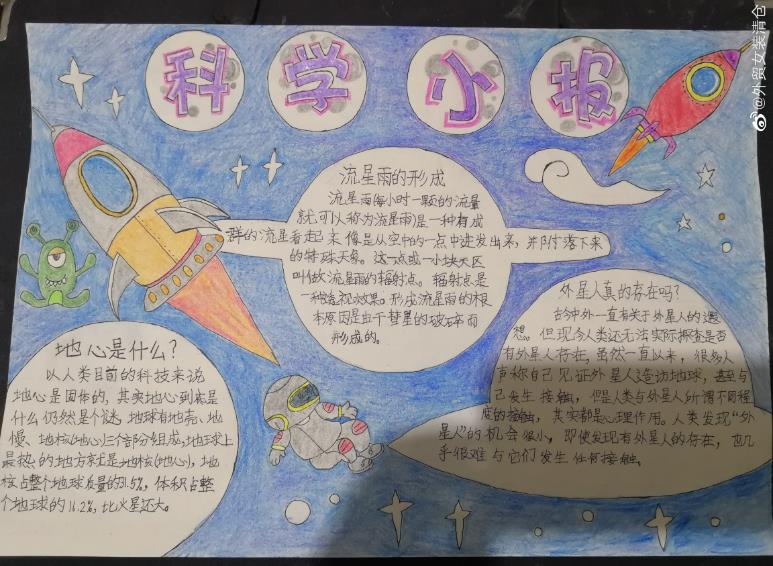 科学小报
流星雨的形成
流星雨每小时一颗的流量
就可以称为流星雨)是一种有成
群的流星看起来像是从空中的一点中迸发出来，并陨落下来
的特殊天象。这一点或一小块天区
叫做流星雨的辐射点。辐射点是
一种透视效果。形成流星雨的根
本原因是由于彗星的破碎而
形成的。
外星人真的存在吗？
古今中外一直有关于外星人的遐
想。但现今人类还无法实际探查是否
有外星人存在，虽然一直以来，很多人
声称自己见证外星人造访地球，甚至与
己发生接触，但是人类与外星人所谓不同程
度的接触，其实都是心理作用。人类发现“外
星人”的机会很小，即使发现有外星人的存在，也几
乎很难与它们发生任何接触。
地心是什么？
以人类目前的科技来说
地心是固体的，其实地心到底是
什么仍然是个谜，地球有地壳、地
慢、地核(地心)三个部分组成，地球上
最热的地方就是地核(地心)，地
核占整个地球质量的31.5%，体积占整
个地球的16.2%，比火星还大。
@外贸女装清仓